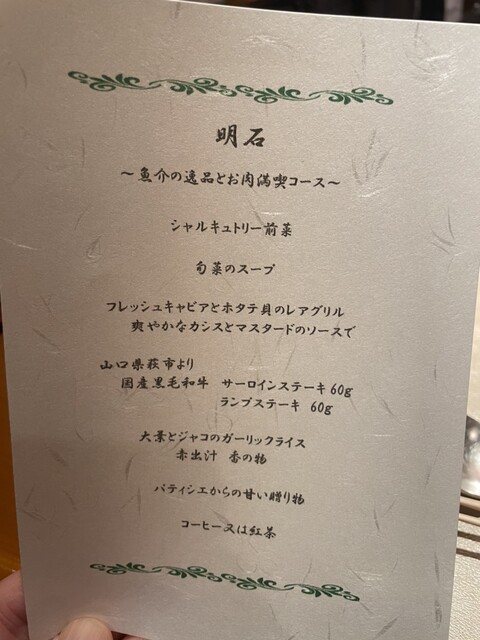 明石
～魚介の逸品とお肉満喫コース～
シャルキュトリー前菜
旬菜のスープ
フレッシュキャビアとホタテ貝のレアグリル
爽やかなカシスとマスタードのソースで
山口県萩市より
国産黒毛和牛 サーロインステーキ 60g
ランプステーキ 60g
大葉とジャコのガーリックライス
赤出汁 香の物
パティシエからの甘い贈り物
コーヒー又は紅茶